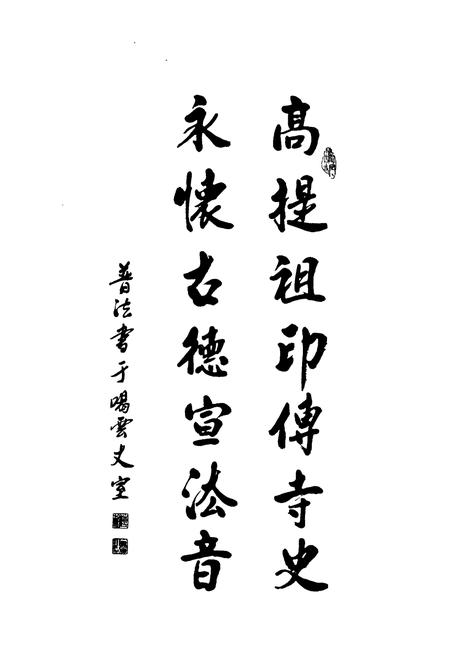 高提祖印傳寺史
永懷古德宣法音
普法書于喝雲丈室